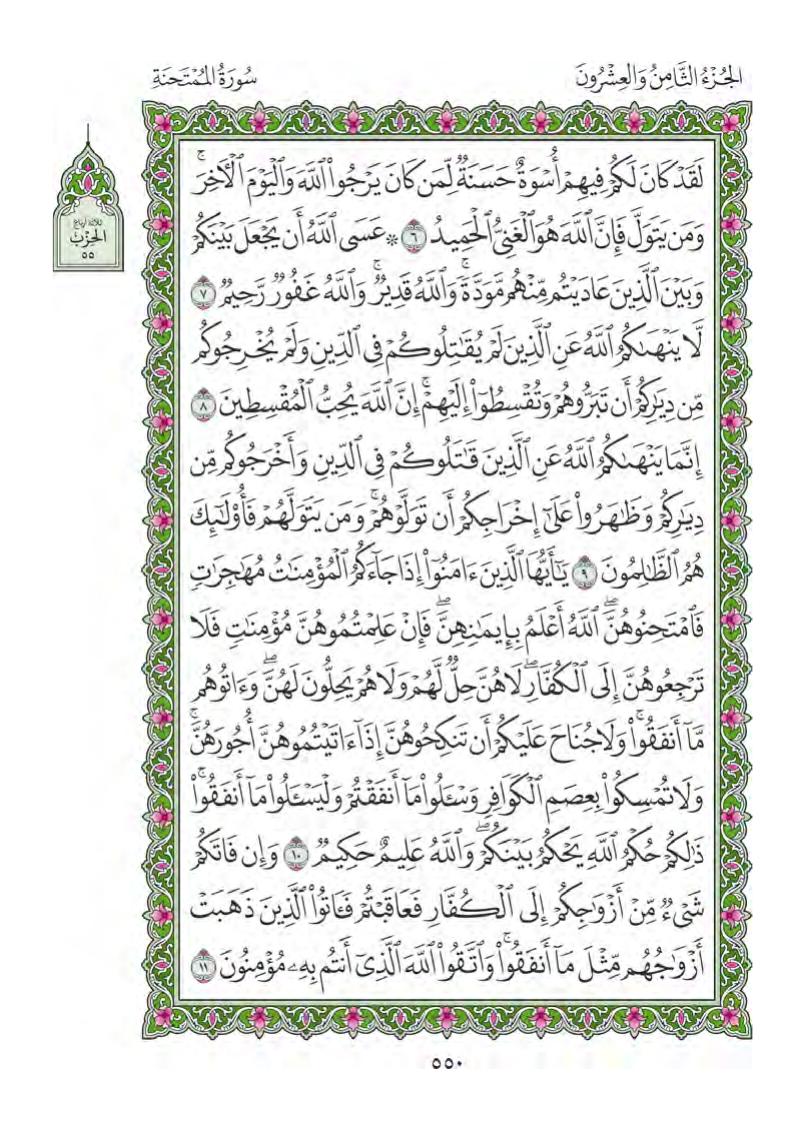 الجُزْءُ الثَّامِنُ وَالعِشْرُونَ
سُورَةُ المُمْتَحنَةِ
لَقَدۡ كَانَ لَكُمۡ فِيهِمۡ أُسۡوَةٌ حَسَنَةٞ لِّمَن كَانَ يَرۡجُواْ ٱللَّهَ وَٱلۡيَوۡمَ ٱلۡأٓخِرَۚ
وَمَن يَتَوَلَّ فَإِنَّ ٱللَّهَ هُوَ ٱلۡغَنِيُّ ٱلۡحَمِيدُ ٦ ۞ عَسَى ٱللَّهُ أَن يَجۡعَلَ بَيۡنَكُمۡ
وَبَيۡنَ ٱلَّذِينَ عَادَيۡتُم مِّنۡهُم مَّوَدَّةٗۚ وَٱللَّهُ قَدِيرٞۚ وَٱللَّهُ غَفُورٞ رَّحِيمٞ ٧
لَّا يَنۡهَىٰكُمُ ٱللَّهُ عَنِ ٱلَّذِينَ لَمۡ يُقَٰتِلُوكُمۡ فِي ٱلدِّينِ وَلَمۡ يُخۡرِجُوكُم
مِّن دِيَٰرِكُمۡ أَن تَبَرُّوهُمۡ وَتُقۡسِطُوٓاْ إِلَيۡهِمۡۚ إِنَّ ٱللَّهَ يُحِبُّ ٱلۡمُقۡسِطِينَ ٨
إِنَّمَا يَنۡهَىٰكُمُ ٱللَّهُ عَنِ ٱلَّذِينَ قَٰتَلُوكُمۡ فِي ٱلدِّينِ وَأَخۡرَجُوكُم مِّن
دِيَٰرِكُمۡ وَظَٰهَرُواْ عَلَىٰٓ إِخۡرَاجِكُمۡ أَن تَوَلَّوۡهُمۡۚ وَمَن يَتَوَلَّهُمۡ فَأُوْلَٰٓئِكَ
هُمُ ٱلظَّٰلِمُونَ ٩ يَٰٓأَيُّهَا ٱلَّذِينَ ءَامَنُوٓاْ إِذَا جَآءَكُمُ ٱلۡمُؤۡمِنَٰتُ مُهَٰجِرَٰتٖ
فَٱمۡتَحِنُوهُنَّۖ ٱللَّهُ أَعۡلَمُ بِإِيمَٰنِهِنَّۖ فَإِنۡ عَلِمۡتُمُوهُنَّ مُؤۡمِنَٰتٖ فَلَا
تَرۡجِعُوهُنَّ إِلَى ٱلۡكُفَّارِۖ لَا هُنَّ حِلّٞ لَّهُمۡ وَلَا هُمۡ يَحِلُّونَ لَهُنَّۖ وَءَاتُوهُم
مَّآ أَنفَقُواْۚ وَلَا جُنَاحَ عَلَيۡكُمۡ أَن تَنكِحُوهُنَّ إِذَآ ءَاتَيۡتُمُوهُنَّ أُجُورَهُنَّۚ
وَلَا تُمۡسِكُواْ بِعِصَمِ ٱلۡكَوَافِرِ وَسۡـَٔلُواْ مَآ أَنفَقۡتُمۡ وَلۡيَسۡـَٔلُواْ مَآ أَنفَقُواْۚ
ذَٰلِكُمۡ حُكۡمُ ٱللَّهِ يَحۡكُمُ بَيۡنَكُمۡۖ وَٱللَّهُ عَلِيمٌ حَكِيمٞ ١٠ وَإِن فَاتَكُمۡ
شَيۡءٞ مِّنۡ أَزۡوَٰجِكُمۡ إِلَى ٱلۡكُفَّارِ فَعَاقَبۡتُمۡ فَـَٔاتُواْ ٱلَّذِينَ ذَهَبَتۡ
أَزۡوَٰجُهُم مِّثۡلَ مَآ أَنفَقُواْۚ وَٱتَّقُواْ ٱللَّهَ ٱلَّذِيٓ أَنتُم بِهِۦ مُؤۡمِنُونَ ١١
ثلاثة أرباع
الحِزْبِ
٥٥
٥٥٠